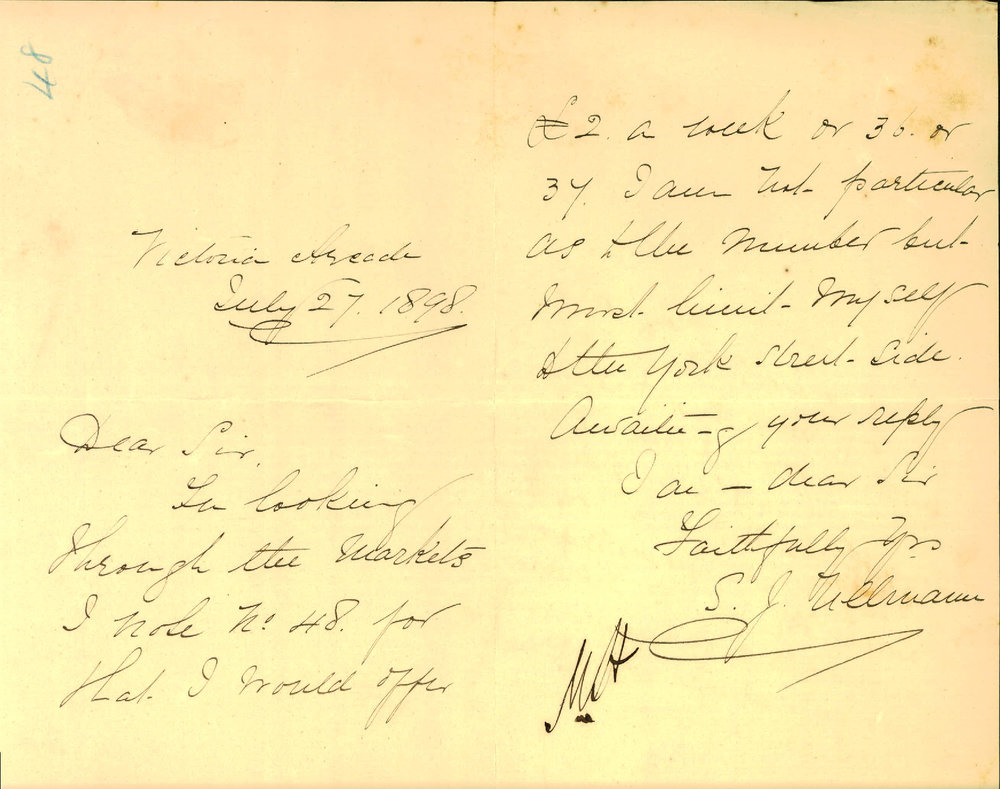 48
Victoria Arcade
July 27. 1898.
Dear Sir,
In looking
through the Markets
I note No. 48. for
that I would offer
£2. a week or 36. or
37. I am not particular
as to the number but
must limit myself
to the York Street side.
Awaiting your reply
I am dear Sir
Faithfully Yrs
S. J. Ullmann